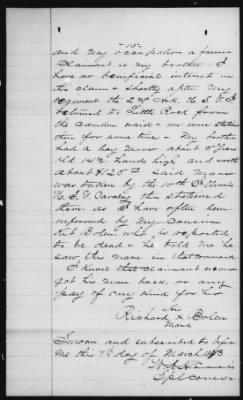 -15-
and my occupation a farmer
Claimant is my brother - I
have no beneficial interest in
this claim - Shortly after my
regiment the 2nd Ark. U.S.V.I.
returned to Little Rock from
the Camden raid - we were stationed
there for some time - My brother
had a bay mare about 5 years
old 14½ hands high and worth
about $125.00 Said mare
was taken by the 10th Illinois
U.S.V. Cavalry then stationed
there as I have often been
informed by my cousin
Kit Bolen who is reported
to be dead - he told me he
saw this mare in that command
I know that claimant never
got his mare back or any
pay of any kind for her
his
Richard X Bolen
Mark
Sworn and subscribed to before
me this 7th day of March 1873
Spl Comr